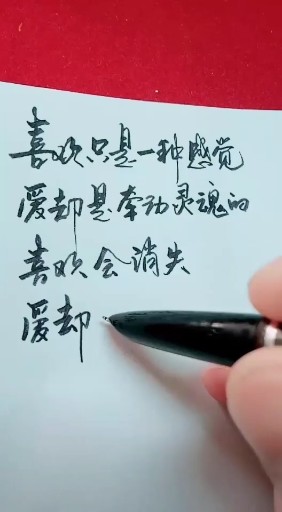 喜欢只是一种感觉
爱却是牵动灵魂的
喜欢会消失
爱却